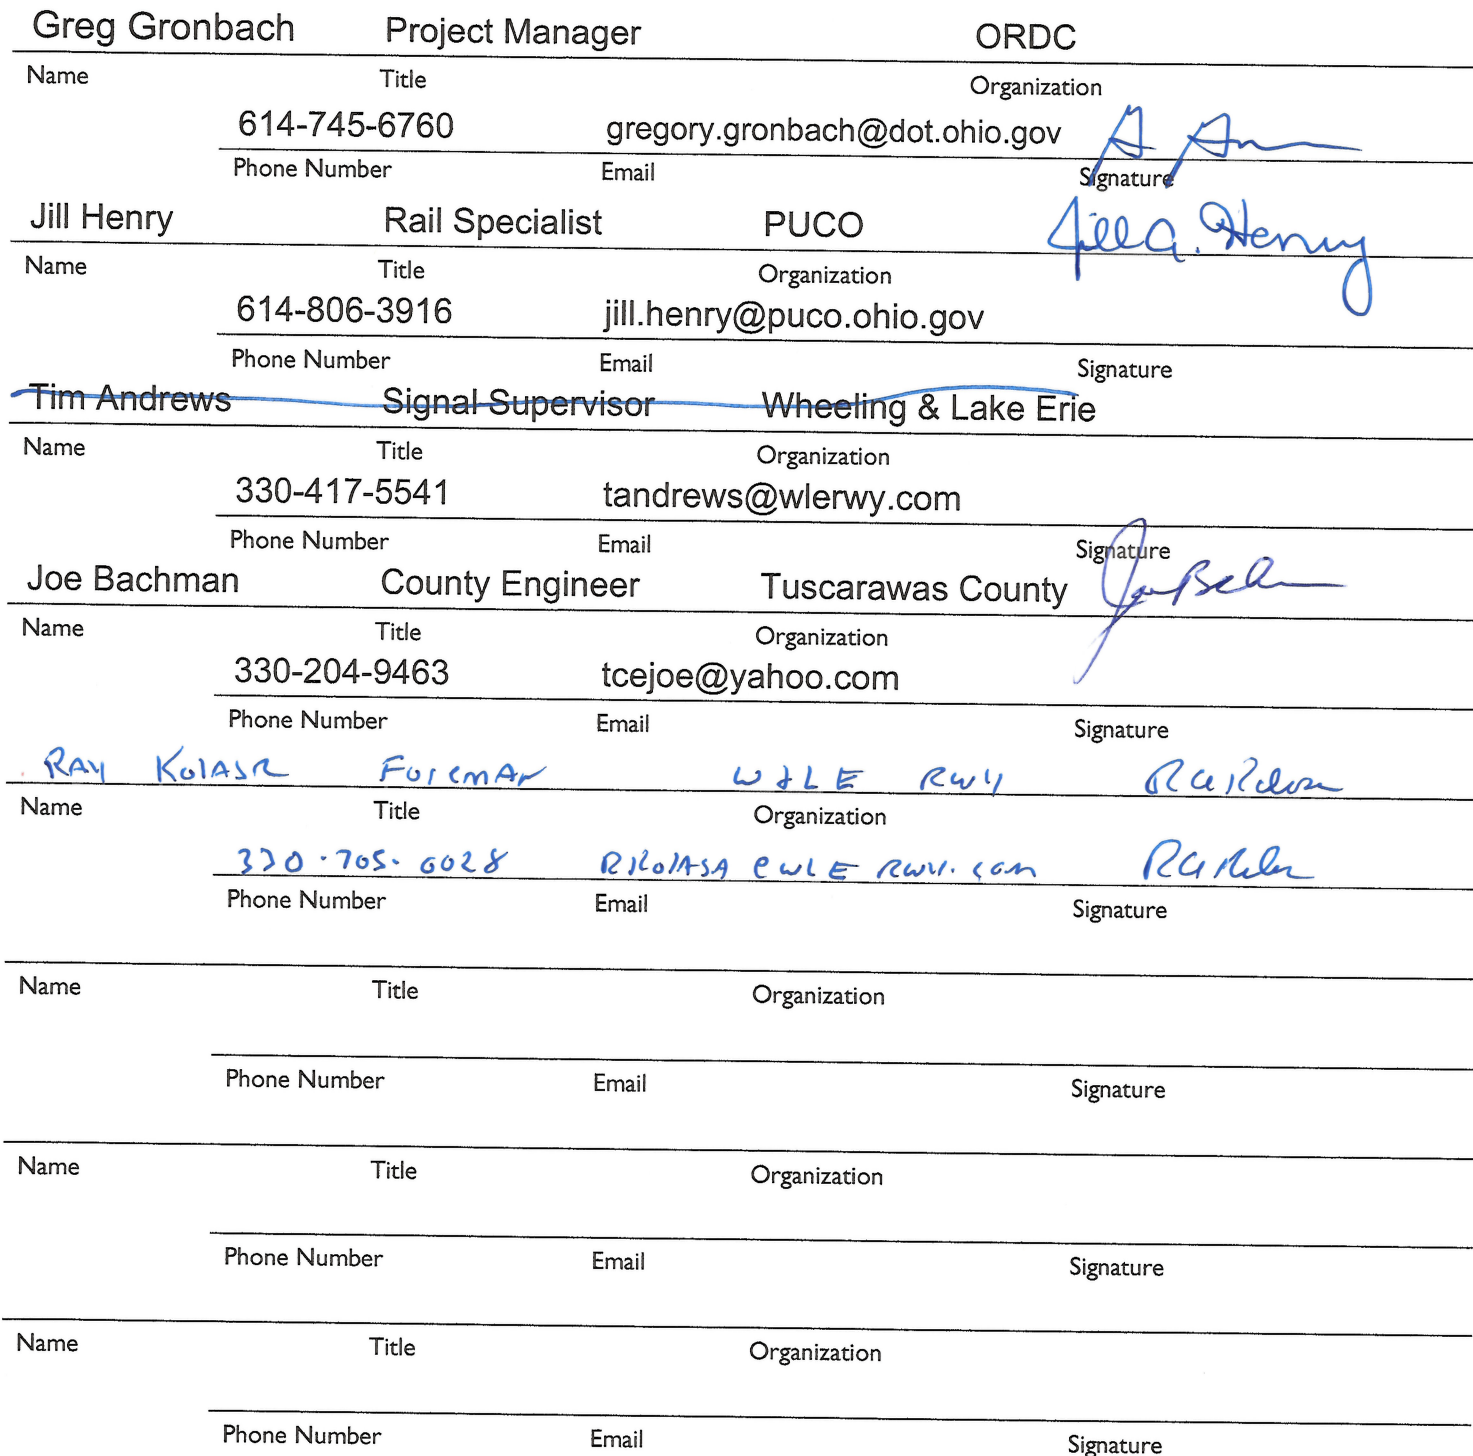 Greg Gronbach Project Manager ORDC
Name Title Organization
614-745-6760 gregory.gronbach@dot.ohio.gov
Phone Number Email Signature
Jill Henry Rail Specialist PUCO Jill A. Henry
Name Title Organization
614-806-3916 jill.henry@puco.ohio.gov
Phone Number Email Signature
Tim Andrews Signal Supervisor Wheeling & Lake Erie
Name Title Organization
330-417-5541 tandrews@wlerwy.com
Phone Number Email Signature
Joe Bachman County Engineer Tuscarawas County
Name Title Organization
330-204-9463 tcejoe@yahoo.com
Phone Number Email Signature
RAY Foreman W&LE RWY
Name Title Organization
330.705.0028 RKolASA@WLERWY.com
Phone Number Email Signature
Name Title Organization
Phone Number Email Signature
Name Title Organization
Phone Number Email Signature
Name Title Organization
Phone Number Email Signature